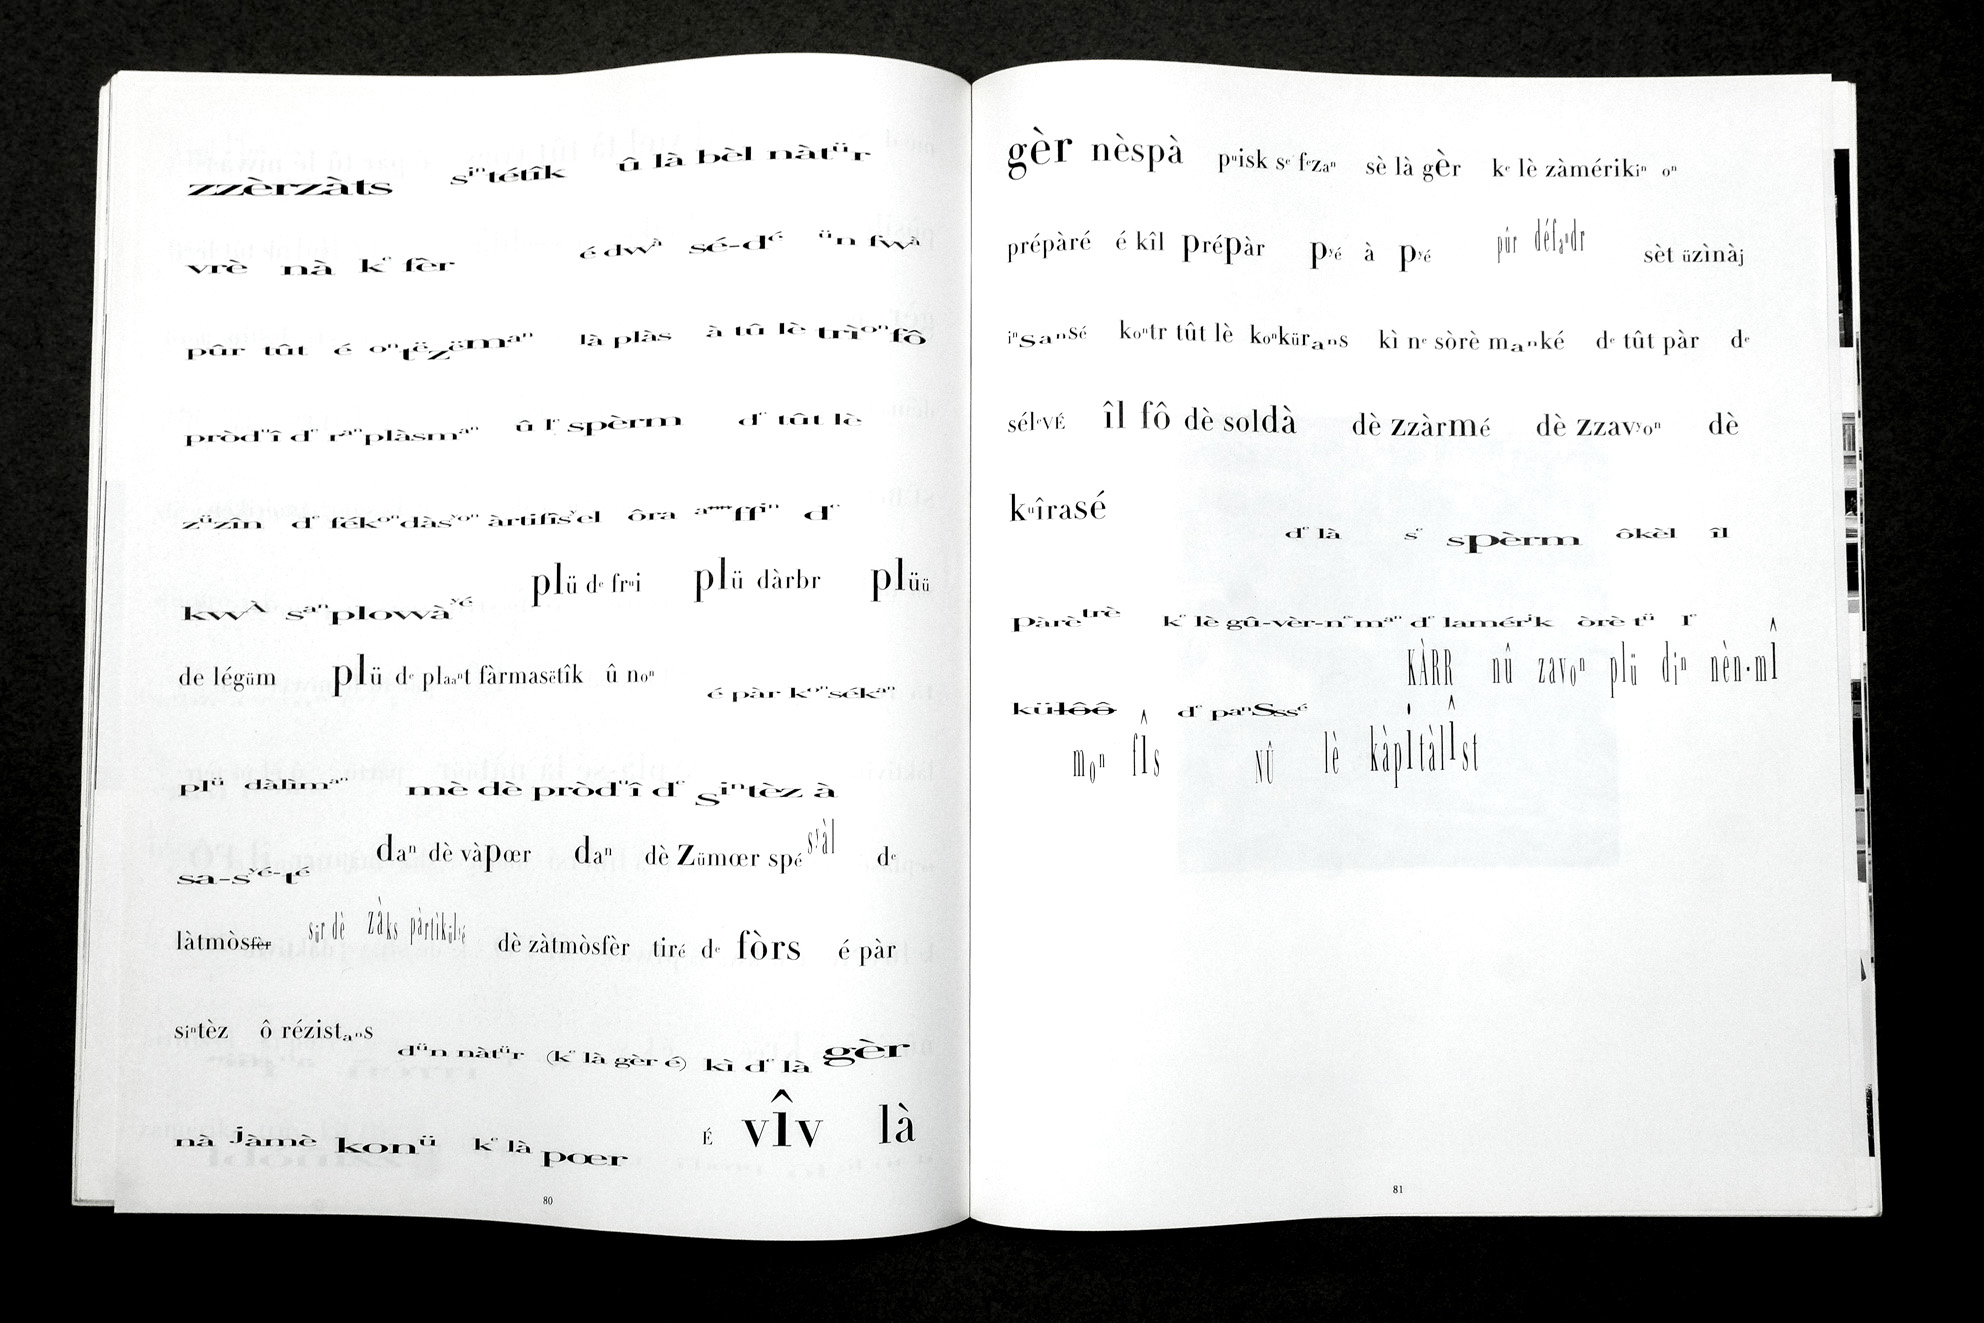 zzèrzàts sⁱⁿtétîk û là bèl nàtür
vrè nà kᵉ fèr é dwà sé-dé ün fwà
pûr tût é ontëzëman là plàs à tû lè trìonfô
pròdüî dᵉ ranplàsman û lᵉ spèrm dᵉ tût lè
züzîn dᵉ fékondàsyon àrtifisyel ôra dᵉ
kwÀ sanplowàyé plü dᵉ frui plü dàrbr plüü
de légüm plü dᵉ plaant fàrmasëtîk û non é pàr konsékan
plü dàliman mè dè pròdüî dᵉ sintèz à
sa-syé-té dan dè vàpœr dan dè Zümœr spésyàl dᵉ
làtmòsfèr sür dè zàks pàrtìkülyé dè zàtmòsfèr tiré dᵉ fòrs é pàr
sintèz ô rézistans dün nàtür (kᵉ là gèr é) kì dᵉ là gèr
nà jàmè konü kᵉ là pœr É vîv là
80
gèr nèspà puisk sᵉ fᵉzan sè là gèr kᵉ lè zàmérikin on
prépàré é kîl prépàr pyé à pyé pûr défandr sèt üzìnàj
insansé kontr tût lè konkürans kì nᵉ sòrè manké dᵉ tût pàr dᵉ
sélᵉvÉ îl fô dè soldà dè zzàrmé dè zzavyon dè
kuîrasé dᵉ là sᵉ spèrm ôkèl îl
pàrètrè kᵉ lè gû-vèr-nᵉman dᵉ lamérik òrè tü lᵉ
külôô dᵉ panSssé KÀRR nû zavon plü din nèn-mî
mon fîs NÛ lè kàpitàlîst
81